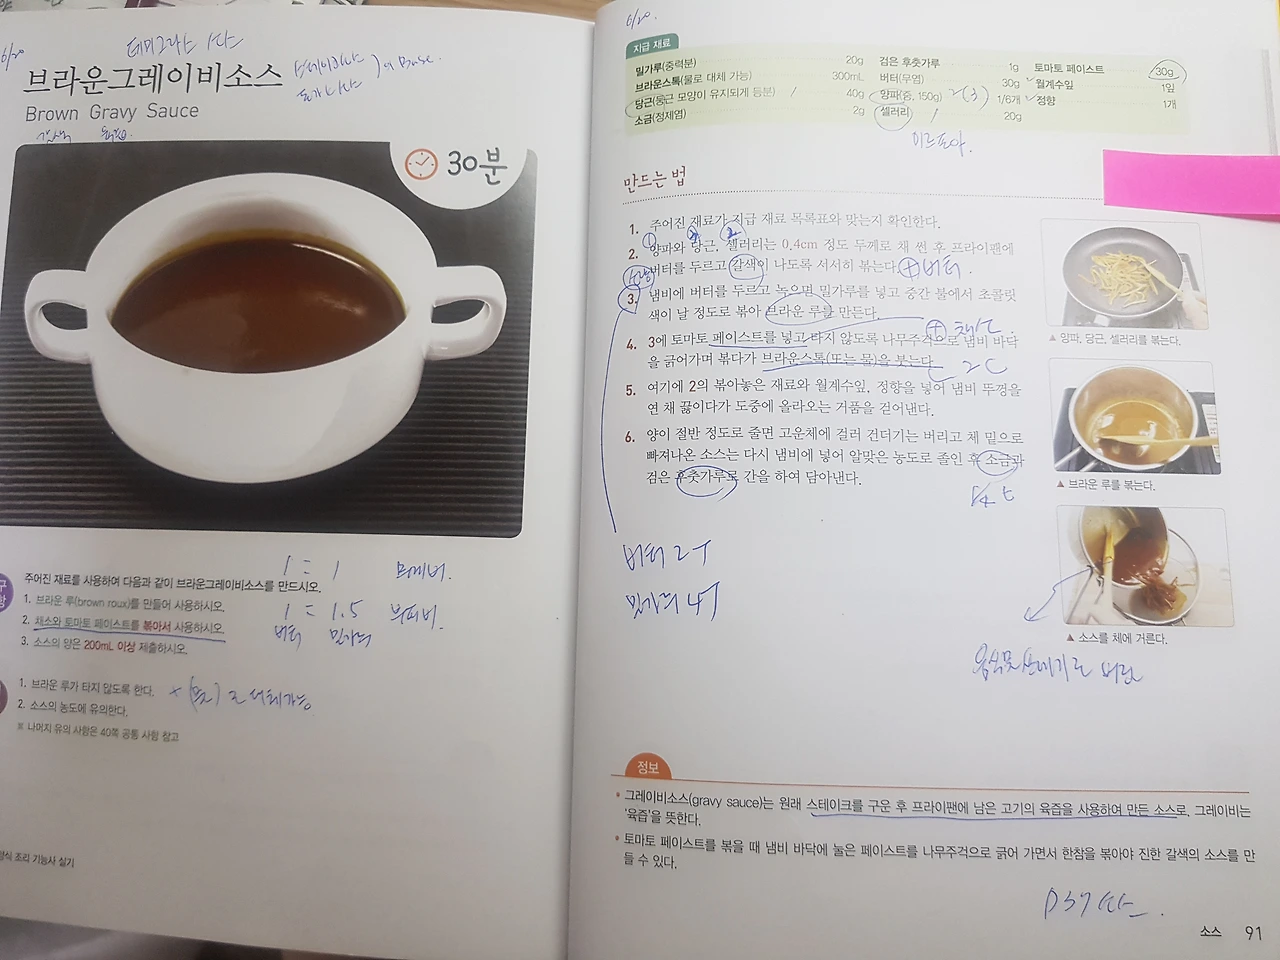 6/20
데미그라스 소스
브라운그레이비소스
Brown Gravy Sauce
갈색 육즙
30분
주어진 재료를 사용하여 다음과 같이 브라운그레이비소스를 만드시오.
1. 브라운 루(brown roux)를 만들어 사용하시오.
2. 채소와 토마토 페이스트를 볶아서 사용하시오.
3. 소스의 양은 200mL 이상 제출하시오.
1 = 1 무게비.
1 = 1.5 부피비.
버터 밀가루
1. 브라운 루가 타지 않도록 한다.
2. 소스의 농도에 유의한다.
※ 나머지 유의 사항은 40쪽 공통 사항 참고
양식 조리 기능사 실기
6/20.
지급 재료
밀가루(중력분) 20g 검은 후춧가루 1g 토마토 페이스트 30g
브라운스톡(물로 대체 가능) 300mL 버터(무염) 30g 월계수잎 1잎
당근(둥근 모양이 유지되게 등분) 40g 양파(중, 150g) 1/6개 정향 1개
소금(정제염) 2g 셀러리 20g
미르포아.
만드는 법
1. 주어진 재료가 지급 재료 목록표와 맞는지 확인한다.
2. 양파와 당근, 셀러리는 0.4cm 정도 두께로 채 썬 후 프라이팬에
버터를 두르고 갈색이 나도록 서서히 볶는다. + 버터.
3. 냄비에 버터를 두르고 녹으면 밀가루를 넣고 중간 불에서 초콜릿
색이 날 정도로 볶아 브라운 루를 만든다.
4. 3에 토마토 페이스트를 넣고 타지 않도록 나무주걱으로 냄비 바닥
을 긁어가며 볶다가 브라운스톡(또는 물)을 붓는다. 2C
5. 여기에 2의 볶아놓은 재료와 월계수잎, 정향을 넣어 냄비 뚜껑을
연 채 끓이다가 도중에 올라오는 거품을 걷어낸다.
6. 양이 절반 정도로 줄면 고운체에 걸러 건더기는 버리고 체 밑으로
빠져나온 소스는 다시 냄비에 넣어 알맞은 농도로 졸인 후 소금과
검은 후춧가루로 간을 하여 담아낸다.
▲ 양파, 당근, 셀러리를 볶는다.
▲ 브라운 루를 볶는다.
▲ 소스를 체에 거른다.
버터 2T
밀가루 4T
음식물쓰레기로 버림
정보
• 그레이비소스(gravy sauce)는 원래 스테이크를 구운 후 프라이팬에 남은 고기의 육즙을 사용하여 만든 소스로, 그레이비는
'육즙'을 뜻한다.
• 토마토 페이스트를 볶을 때 냄비 바닥에 눌은 페이스트를 나무주걱으로 긁어 가면서 한참을 볶아야 진한 갈색의 소스를 만
들 수 있다.
소스 91